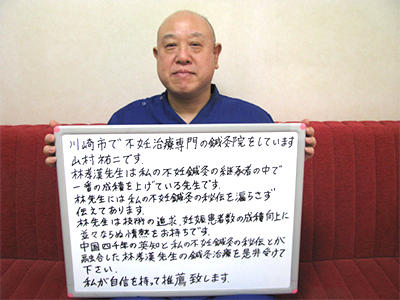 川崎市で不妊治療専門の鍼灸院をしています
山村祐二です.
林孝漢先生は私の不妊鍼灸の継承者の中で
一番の成績を上げている先生です.
林先生には私の不妊鍼灸の秘伝を漏らさず
伝えてあります.
林先生は技術の追求、妊娠患者数の成績向上に
並々ならぬ情熱をお持ちです.
中国四千年の英知と私の不妊鍼灸の秘伝とが
融合した林孝漢先生の鍼灸治療を是非受けて
下さい.
私が自信を持って推薦致します.